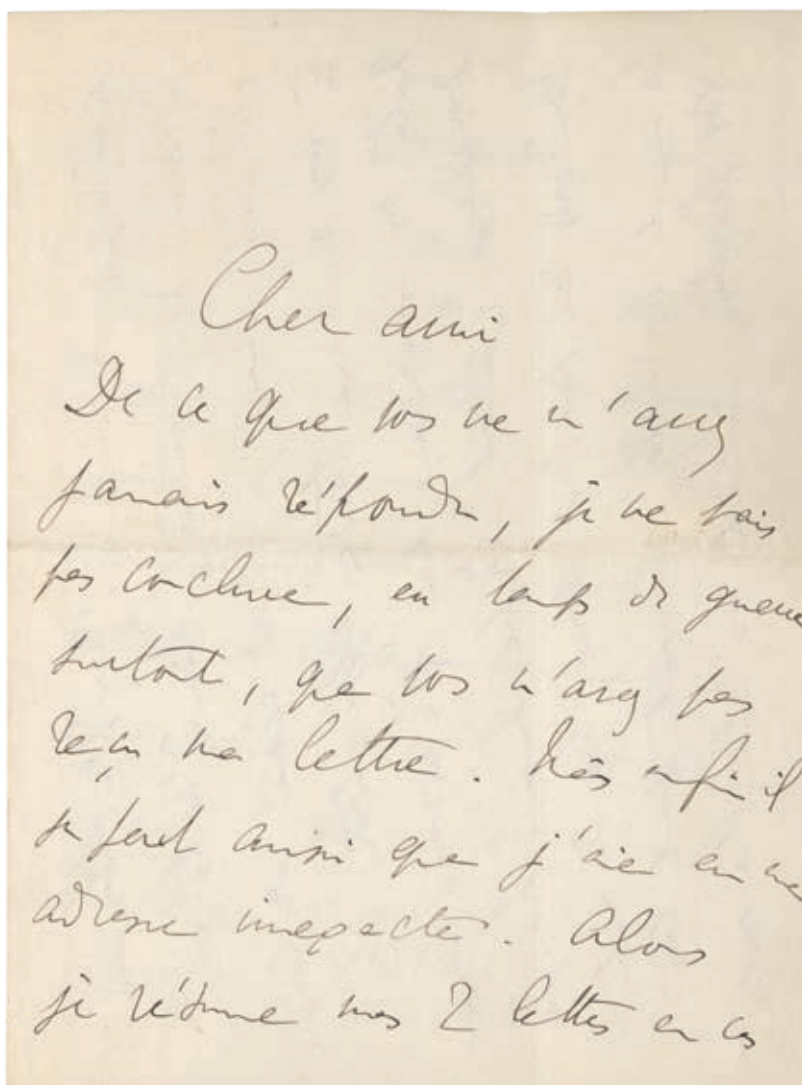 Cher ami
De ce que vos ne m'avez
jamais répondu, je ne vais
pas conclure, en temps de guerre
surtout, que vos n'avez pas
reçu ma lettre. Mais enfin il
se peut aussi que j'aie eu une
adresse inexacte. Alors
je résume mes 2 lettres en ces